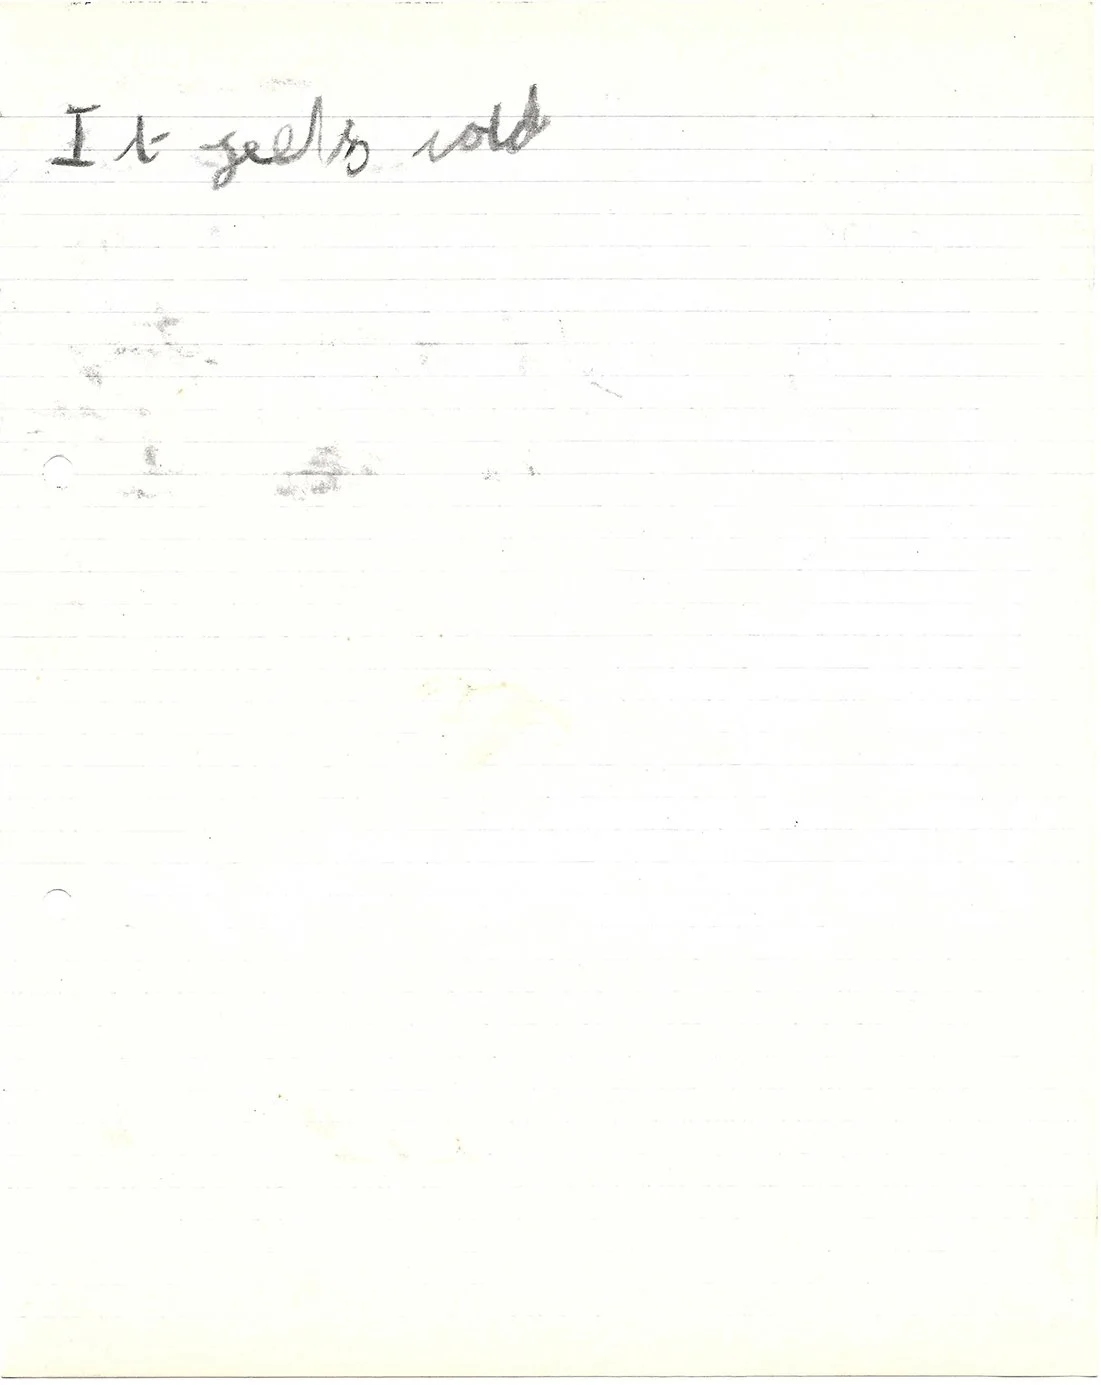 It feels cold